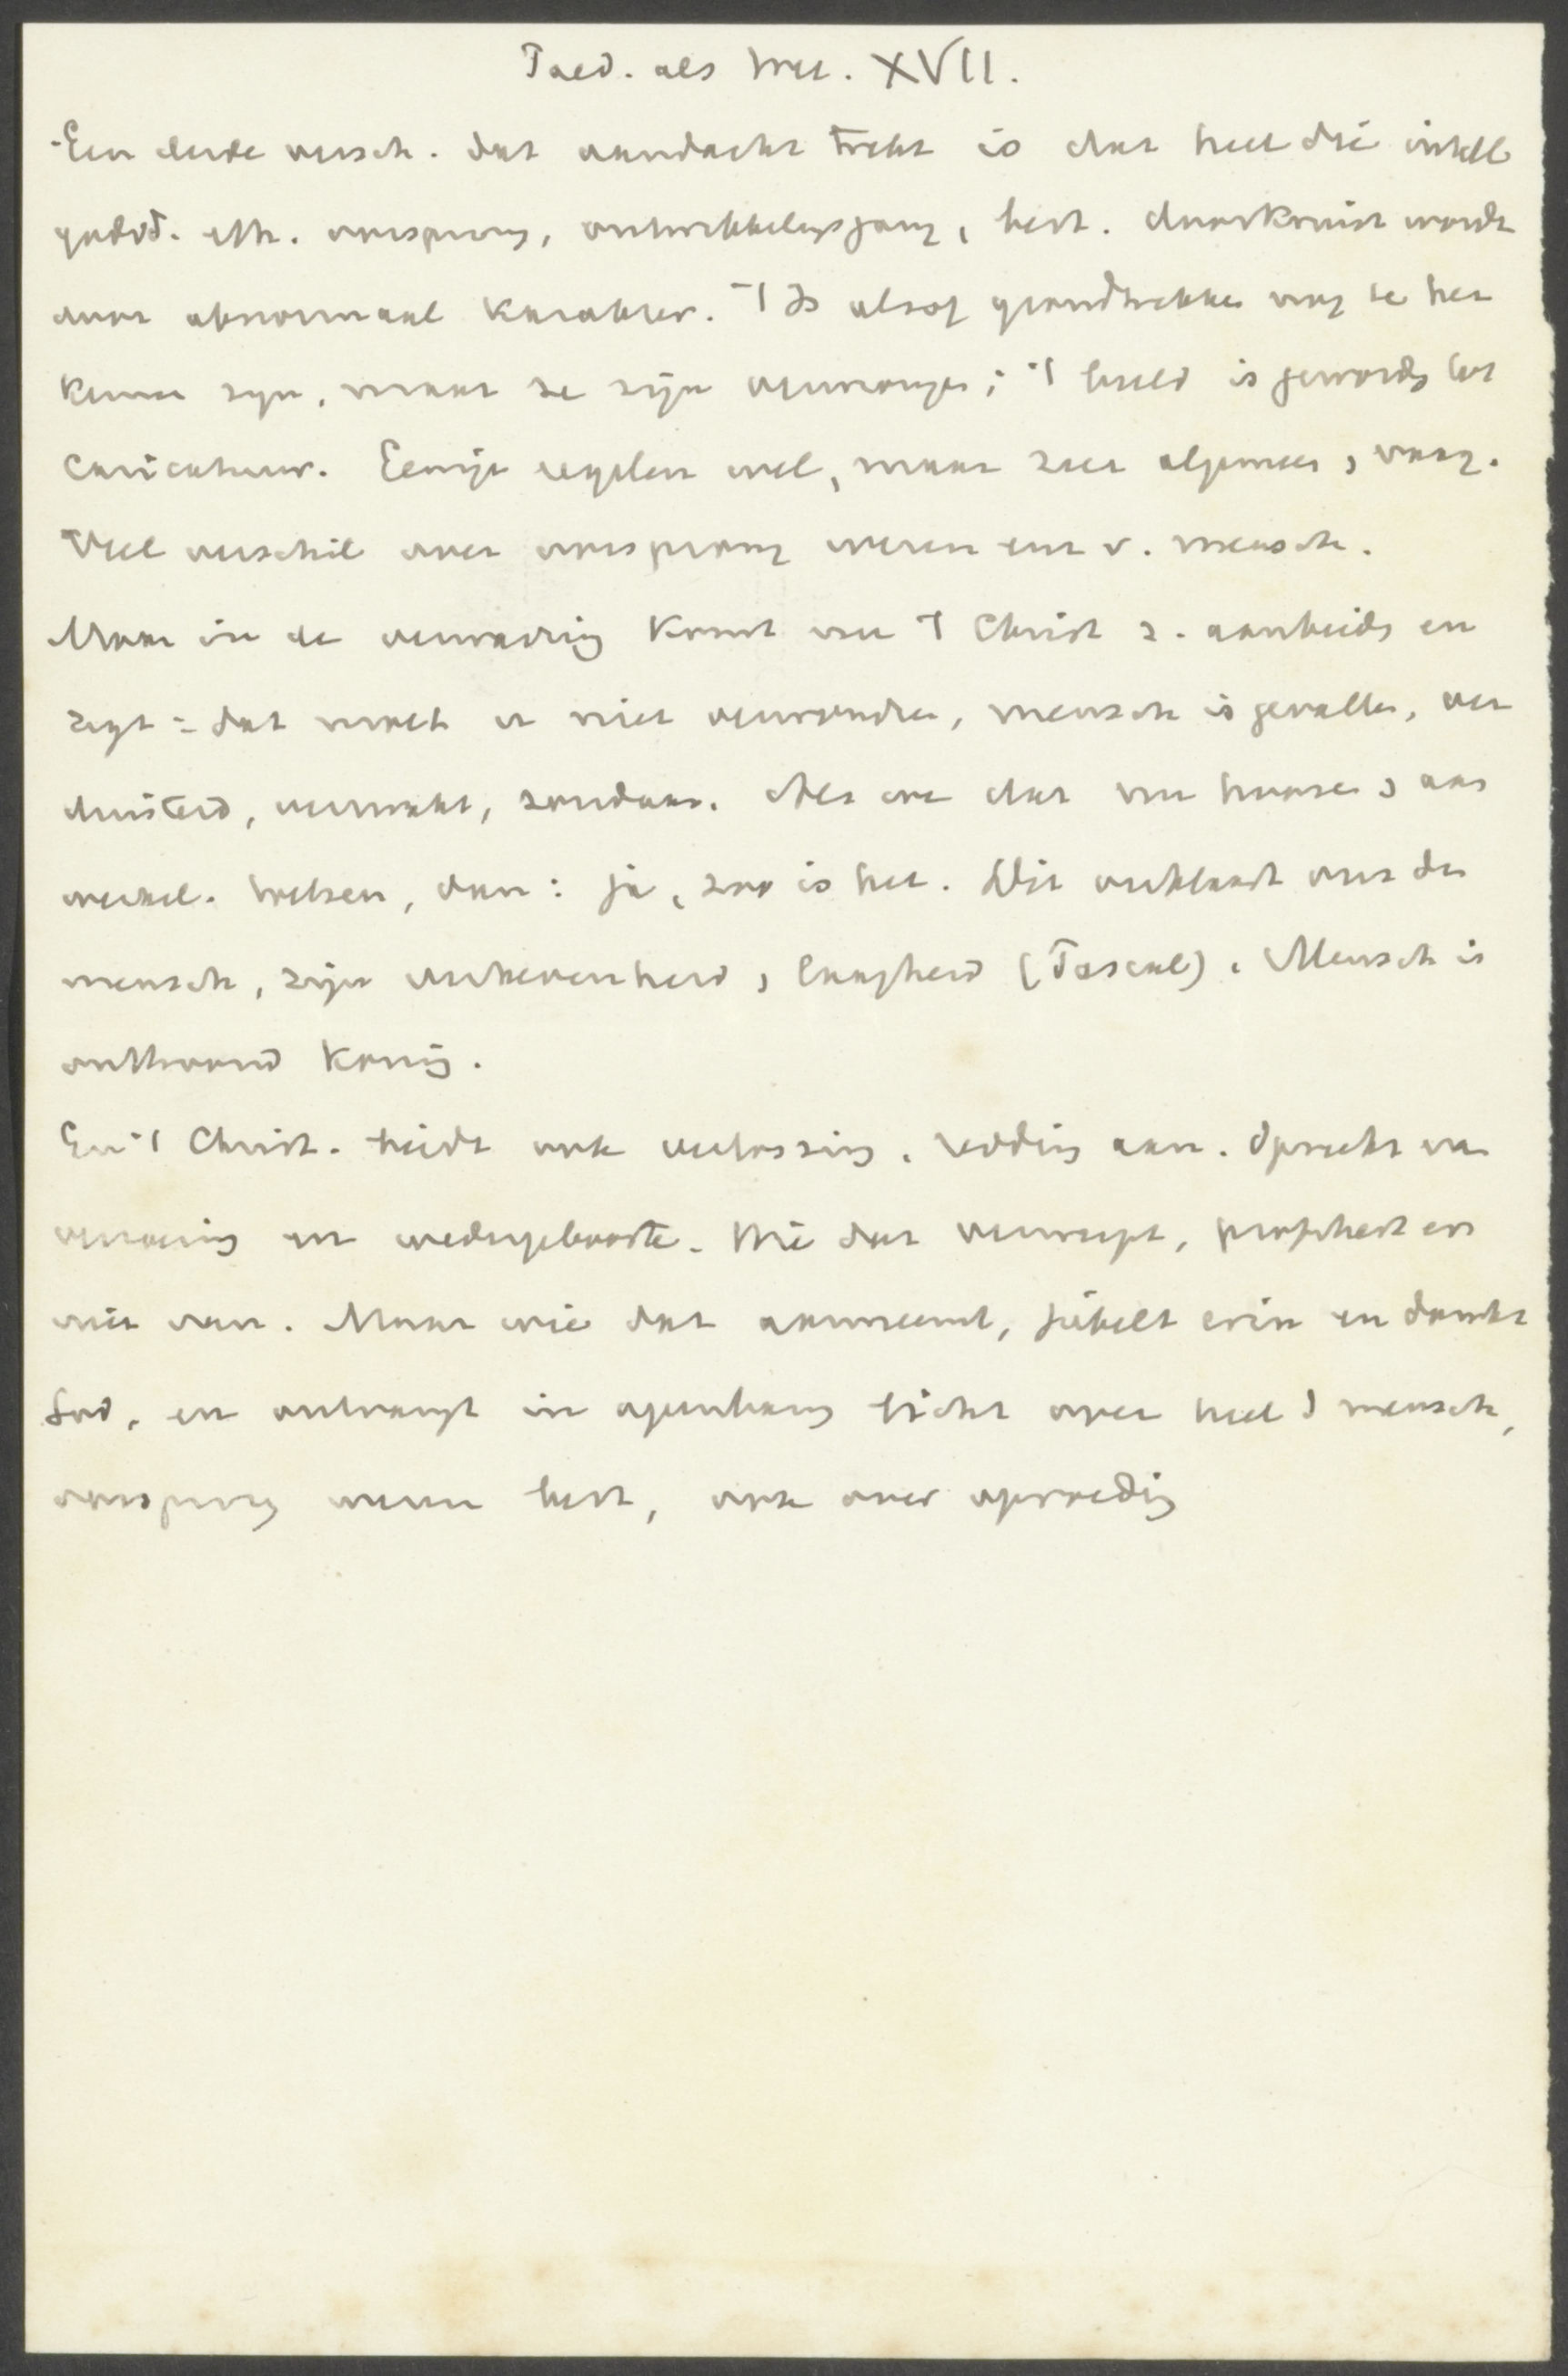 Paed. als Wet. XVII.
Een derde versch. dat aandacht trekt is dat heel die intell
godsd. eth. oorsprong, ontwikkelingsgang, best. doorkruist wordt
door abnormaal karakter. 't Is alsof grondtrekken nog te her
kennen zijn, maar ze zijn verwrongen; 't beeld is geworden tot
caricatuur. Eenige regelen wel, maar zeer algemeen, vaag.
Veel verschil over oorsprong wezen en v. mensch.
Maar in de verwarring komt nu 't Christ z. aanbieden en
zegt: dat moet u niet verwonderen, mensch is gevallen, ver
duisterd, verwekt, zondaar. Als we dat nu hooren, aan
werkel. toetsen, dan: ja, zoo is het. Dit verklaart ons den
mensch, zijn verhevenheid, laagheid (Pascal). Mensch is
onttroond koning.
En 't Christ. biedt ook verlossing, redding aan. Spreekt van
verzoening en wedergeboorte. Wie dat verwerpt, profiteert er
niet van. Maar wie dat aanneemt, jubelt erin en dankt
God, en ontvangt in openbaring licht over heel d mensch,
oorsprong wezen best, ook over opvoeding